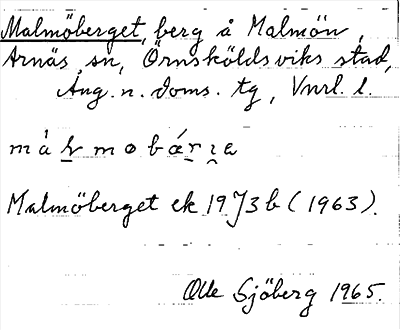 Malmöberget, berg å Malmön,
Arnäs sn, Örnsköldsviks stad,
Ång. n. doms. tg, Vnrl. l.
Malmöberget ek 19 J3 b (1963).
Olle Sjöberg 1965.